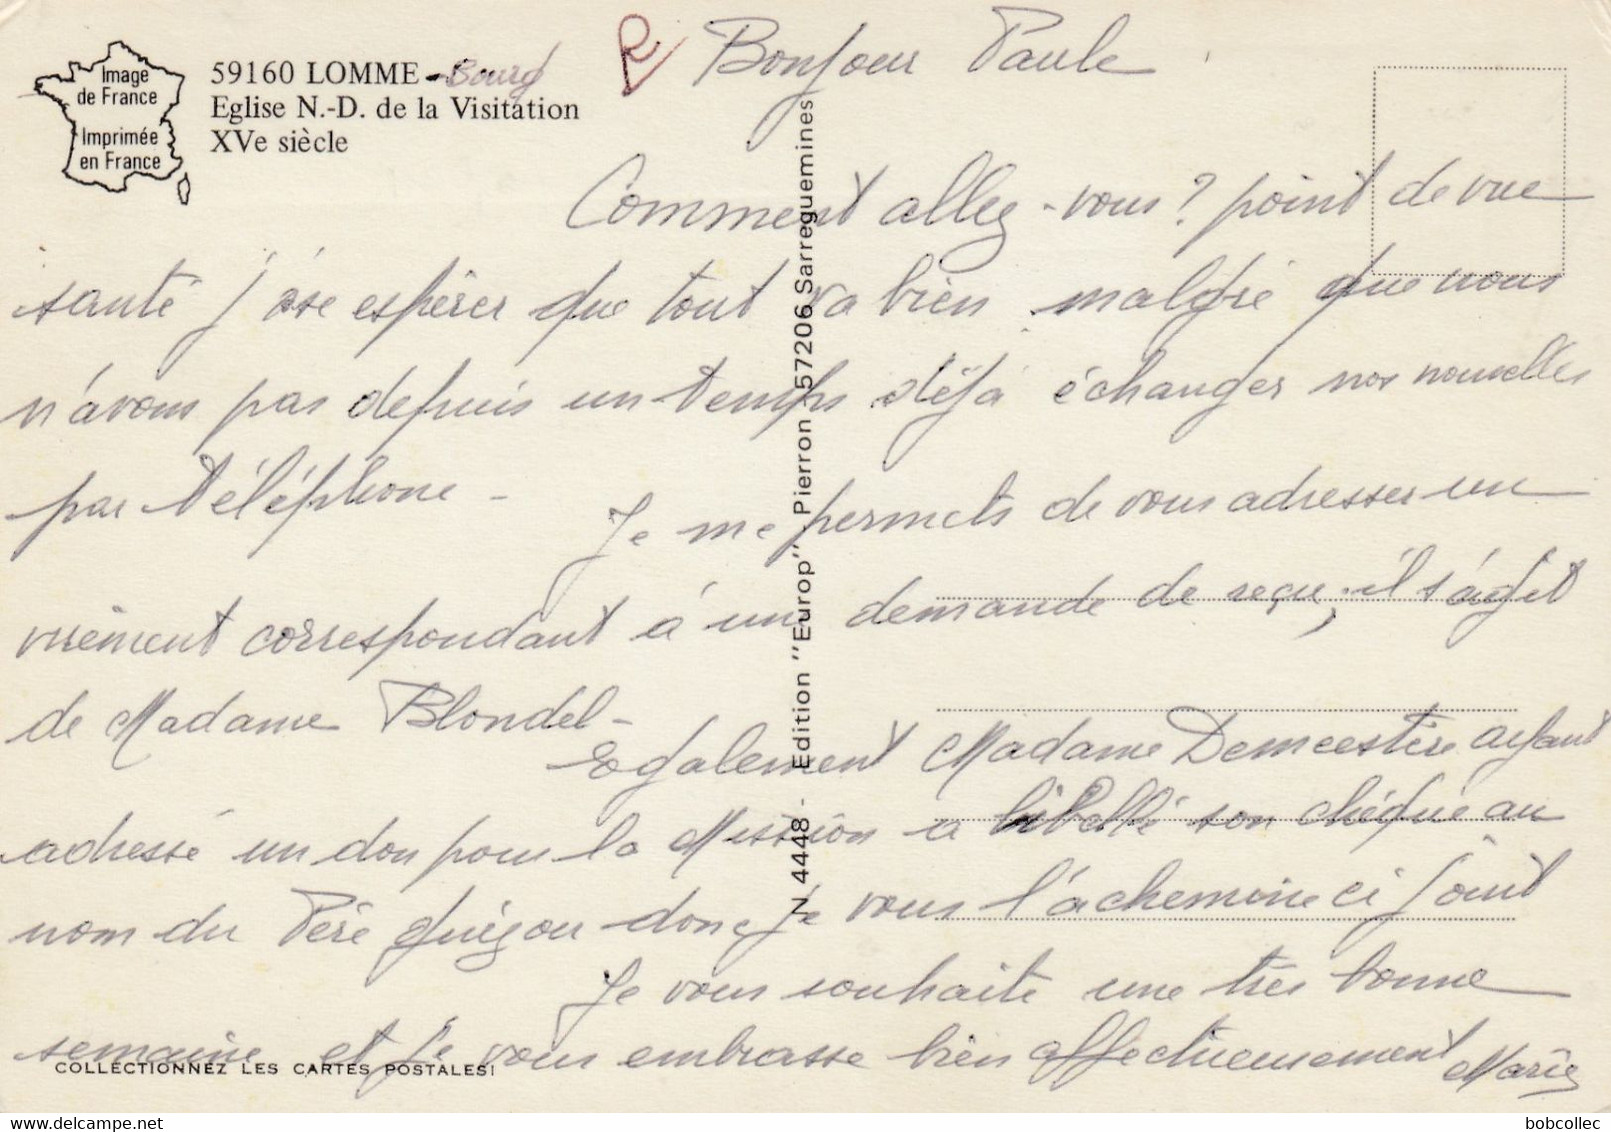 Image
de France
Imprimée
en France
59160 LOMME - Bourg
Eglise N.-D. de la Visitation
XVe siècle
R
Bonjour Paule
Comment allez-vous? point de vue
santé j'ose espérer que tout va bien malgré que nous
n'avons pas depuis un temps déjà échanger nos nouvelles
par téléphone -
Je me permets de vous adresser un
virement correspondant à une demande de reçu, il s'agit
de Madame Blondel -
Egalement Madame Demeestère ayant
adressé un don pour la Mission a libellé son chèque au
nom du Père donc je vous l'achemine ci joint
Je vous souhaite une très bonne
semaine et je vous embrasse bien affectueusement Marie
N 4448 - Edition "Europ" Pierron 57206 Sarreguemines
COLLECTIONNEZ LES CARTES POSTALES!
bobcollec